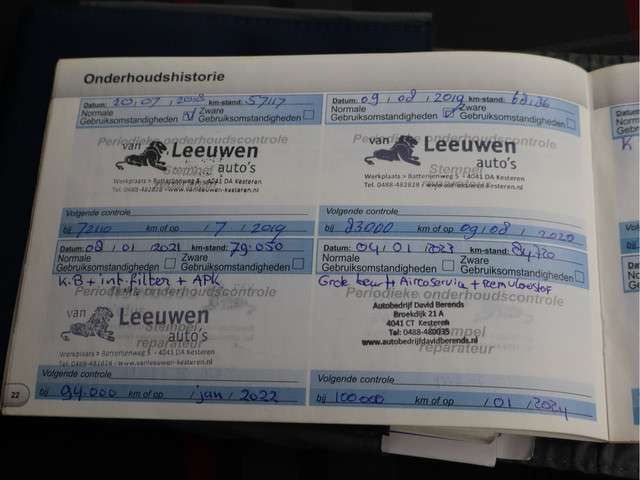 Onderhoudshistorie
Datum: 10, 07, 2018 km-stand: 57117
Normale Gebruiksomstandigheden ☑ Zware Gebruiksomstandigheden ☐
Periodieke onderhoudscontrole
van Leeuwen
auto's
Stempel
Werkplaats > Batterijenweg 5 - 4041 DA Kesteren
Tel. 0488-482828 - www.vanleeuwen-kesteren.nl
Volgende controle
bij 72110 km of op / 7 / 2019
Datum: 09, 08, 2019 km-stand:
Normale Gebruiksomstandigheden ☑ Zware Gebruiksomstandigheden ☐
Periodieke onderhoudscontrole
van Leeuwen
auto's
Stempel
Werkplaats > Batterijenweg 5 - 4041 DA Kesteren
Tel. 0488-482828 - www.vanleeuwen-kesteren.nl
Volgende controle
bij 83000 km of op 09, 08, 2020
Datum: 08, 01, 2021 km-stand: 79.050
Normale Gebruiksomstandigheden ☐ Zware Gebruiksomstandigheden ☐
K.B + int.filter + APK
Periodieke onderhoudscontrole
van Leeuwen
auto's
Stempel,
reparateur
Werkplaats > Batterijenweg 5 - 4041 DA Kesteren
Tel. 0488-482828 - www.vanleeuwen-kesteren.nl
Volgende controle
bij 94.000 km of op jan / 2022
Datum: 04, 01, 2023 km-stand:
Normale Gebruiksomstandigheden ☐ Zware Gebruiksomstandigheden ☐
Grote beurt + Aircoservice + Remvloeistof
Periodieke onderhoudscontrole
Autobedrijf David Berends
Broekdijk 21 A
4041 CT Kesteren
Stempel
Tel: 0488-480035
www.autobedrijfdavidberends.nl
reparateur
Volgende controle
bij 100000 km of op / 01 / 2024
22